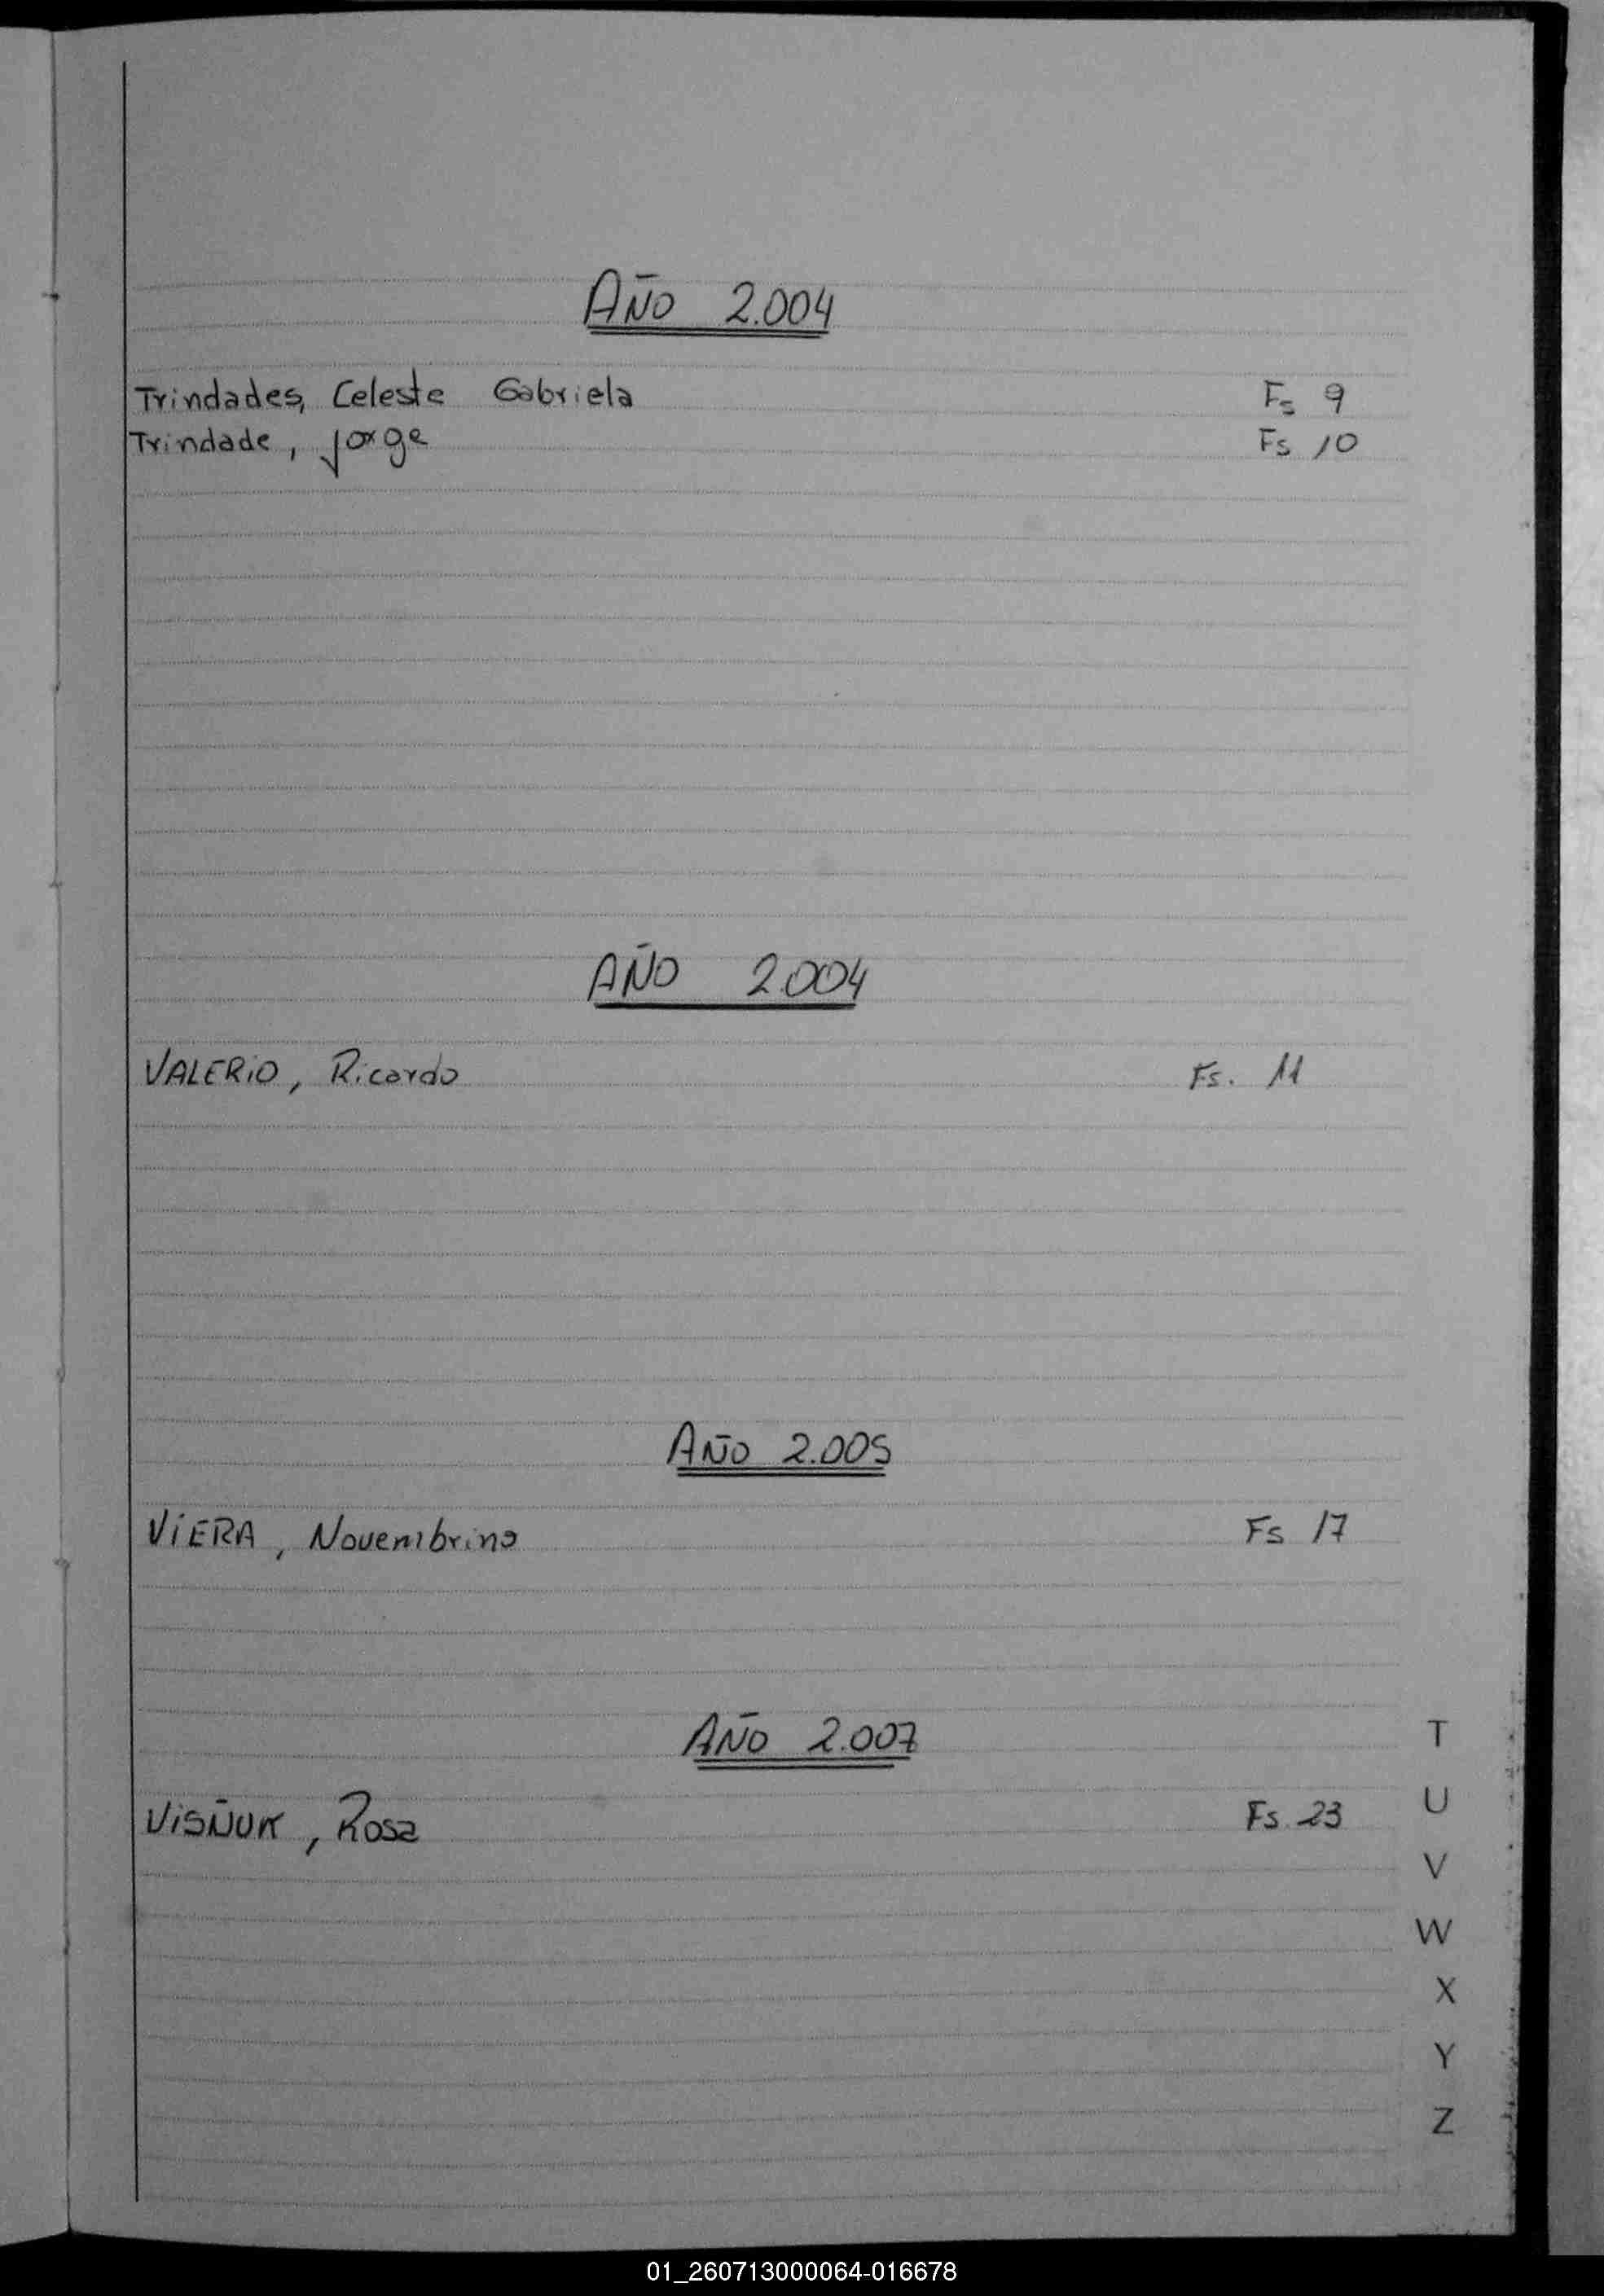 AÑO 2.004
Trindades, Celeste Gabriela Fs 9
Trindade, Jorge Fs 10
AÑO 2.004
VALERiO, Ricardo Fs. 11
AÑO 2.005
ViERA, Novembrino Fs 17
AÑO 2.007
ViSÑUK, Rosa Fs. 23
T
U
V
W
X
Y
Z
01_260713000064-016678